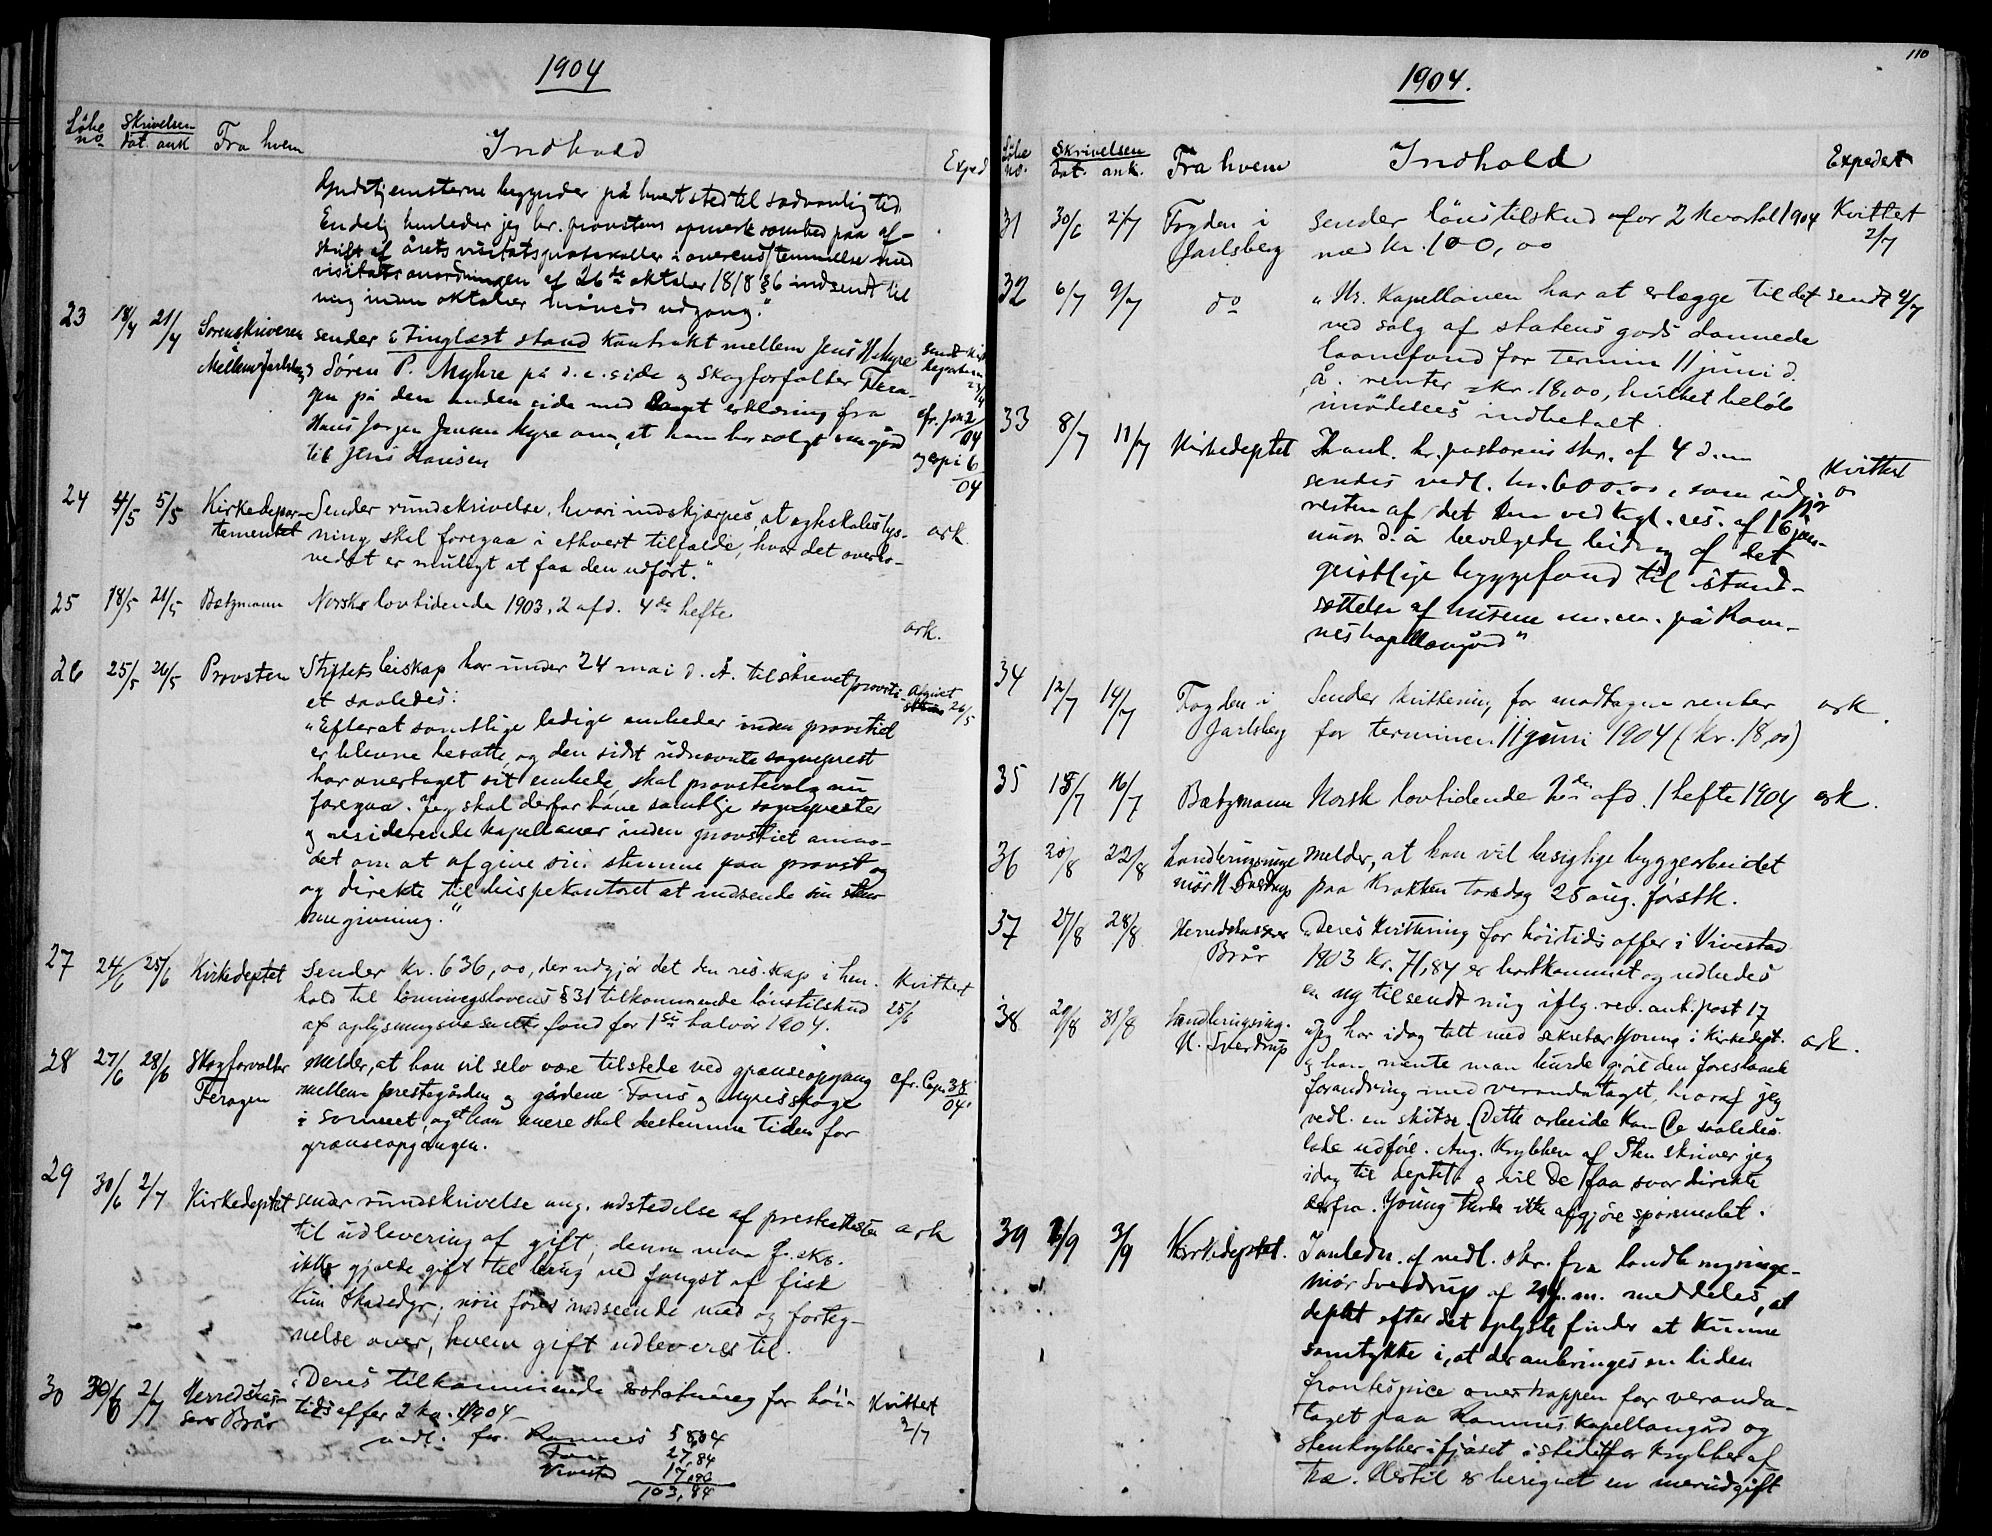 1904
Löbe no. Skrivelsen dat. ank. Fra hvem Indhold Exped
Gudstjenesterne begynder på hvert sted til sædvanlig tid.
Endelig henleder jeg hr. provstens opmerksomhed paa af-
skrift af årets visitatsprotokoller i overensstemmelse med
visitatsanordningen af 26de oktober 1818 §6 indsendt til
mig inden oktober måneds udgang."
23 18/4 21/4 Sorenskriveren Mellem Jarlsberg sender tinglæst stand kontrakt mellem Jens H. Myre sendt
og Søren P. Myhre på d. e. side og Skogforfalter Fera- 23/4
gen på den anden side med erklæring fra cfr. jon 2/04
Hans Jørgen Jensen Myre om, at han har solgt sin gård og 6/04
til Jens Hansen
24 4/5 5/5 Kirkedepar- Sender rundskrivelse, hvori indskjærpes, at ægteskabslys- ark
tementet ning skal foregaa i ethvert tilfælde, hvor det overho-
vedet er muligt at faa den udført."
25 18/5 21/5 Bætzmann Norsk lovtidende 1903, 2 afd. 4de hefte ark.
26 25/5 26/5 Provsten Stiftets biskop har under 24 mai d. A. tilskrevet provsti- Afgivet
et saaledes: 26/5
"Efterat samtlige ledige embeder inden provstiet
er blevne besatte, og den sidst udnævnte sogneprest
har overtaget sit embede, skal provstevalg nu
foregaa. Jeg skal derfor have samtlige sogneprester
og residerende kapellaner inden provstiet anmo-
det om at afgive sin stemme paa provst og
og direkte til bispekontoret at indsende sin stem-
megivning."
27 24/6 25/6 Kirkedeptet sender kr. 636,00, der udgjør det den res. kap i hen- Kvittert
hold til lønningslovens §31 tilkommende lønstilskud 25/6
af oplysningsvæsenets fond for 1ste halvår 1904.
28 27/6 28/6 Skogforvalter Melder, at han vil selv være tilstede ved grænseopgang cfr. Cop. 38/04.
Feragen mellem prestegården og gårdene Fons og Myres skoge
i sommer, og at han nere skal bestemme tiden for
grænseopgangen.
29 30/6 2/7 Kirkedeptet sender rundskrivelse ang. udstedelse af presteattester ark
til udlevering af gift, denne maa f. eks.
ikke gjælde gift til brug ved fangst af fisk
kun skadedyr; nøie føres indseende med og forteg-
nelse over, hvem gift udleveres til.
30 30/6 2/7 Herredskas- "Deres tilkommende erstatning for høi- Kvittert
serer Brår tidsoffer 2 kv. 1904 2/7
vedl. for Ramnes 58,04
Fon 27,84
Vivestad 17,96
103,84
110
1904.
Löbe no. Skrivelsen dat. ank. Fra hvem Indhold Expedert
31 30/6 2/7 Fogden i sender lönstilskud for 2 kvartal 1904 Kvittert
Jarlsberg med kr. 100,00 2/7
32 6/7 9/7 do "Hr. Kapellanen har at erlægge til det sendt 9/7
ved salg af statens gods dannede
laanefond for termin 11 juni d.
å. renter = kr. 18,00, hvilket beløb
imødesees indbetalt.
33 8/7 11/7 Kirkedeptet I hanl. hr. pastorens skr. af 4 d.m Kvittert
sendes vedl. kr. 600,00, som udgjør
resten af det Dem ved kgl. res. af 16 jan-
uar d. å bevilgede bidrag af det
geistlige byggefond til istand-
sættelse af husene m. m. på Ram-
nes kapellangård"
34 12/7 14/7 Fogden i Sender kvittering for modtagne renter ark.
Jarlsberg for terminen 11 juni 1904 (kr. 18,00)
35 15/7 16/7 Bætzmann Norsk lovtidende 2den afd. 1 hefte 1904 ark.
36 20/8 22/8 Landbrugsinge- Melder, at han vil besigtige byggearbeidet
niør N. Sverdrup paa Krakken torsdag 25 aug. førstk.
37 27/8 28/8 Herredskasserer "Deres kvittering for høitidsoffer i Vivestad
Brår 1903 kr. 71,84 er bortkommet og udbedes
en ny tilsendt mig iflg. rev. ant. post 17
38 29/8 31/8 Landbrugsing. "Jeg har idag talt med sekretær Young i kirkedept. ark.
N. Sverdrup og han mente man burde gjøre den foreslaaede
forandring med verandataget, hvoraf jeg
vedl. en skitse. Dette arbeide kan De saaledes
lade udføre. Ang. krybben af sten skriver jeg
idag til deptet og vil De faa svar direkte
derfra. Young turde ikke afgjøre spørsmaalet.
39 1/9 3/9 Kirkedeptet. I anledn. af vedl. skr. fra landbrugsinge-
niør Sverdrup af 29 f. m. meddeles, at
deptet efter det oplyste finder at kunne
samtykke i, at der anbringes en liden
frontespice over trappen for veranda-
taget paa Ramnes kapellangård og
stenkrybber i fjøset istedetfor krybber af
træ. Hertil er beregnet en merudgift